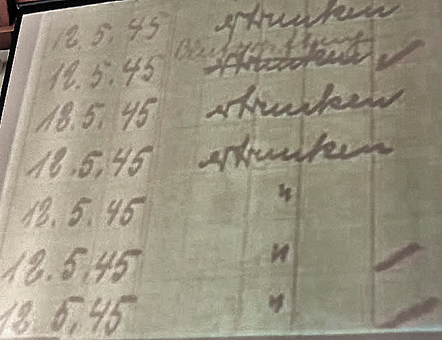 12.5.45 ertrunken
12.5.45 ertrunken ✓
12.5.45 ertrunken
12.5.45 ertrunken
12.5.45 "
12.5.45 "
12.5.45 "